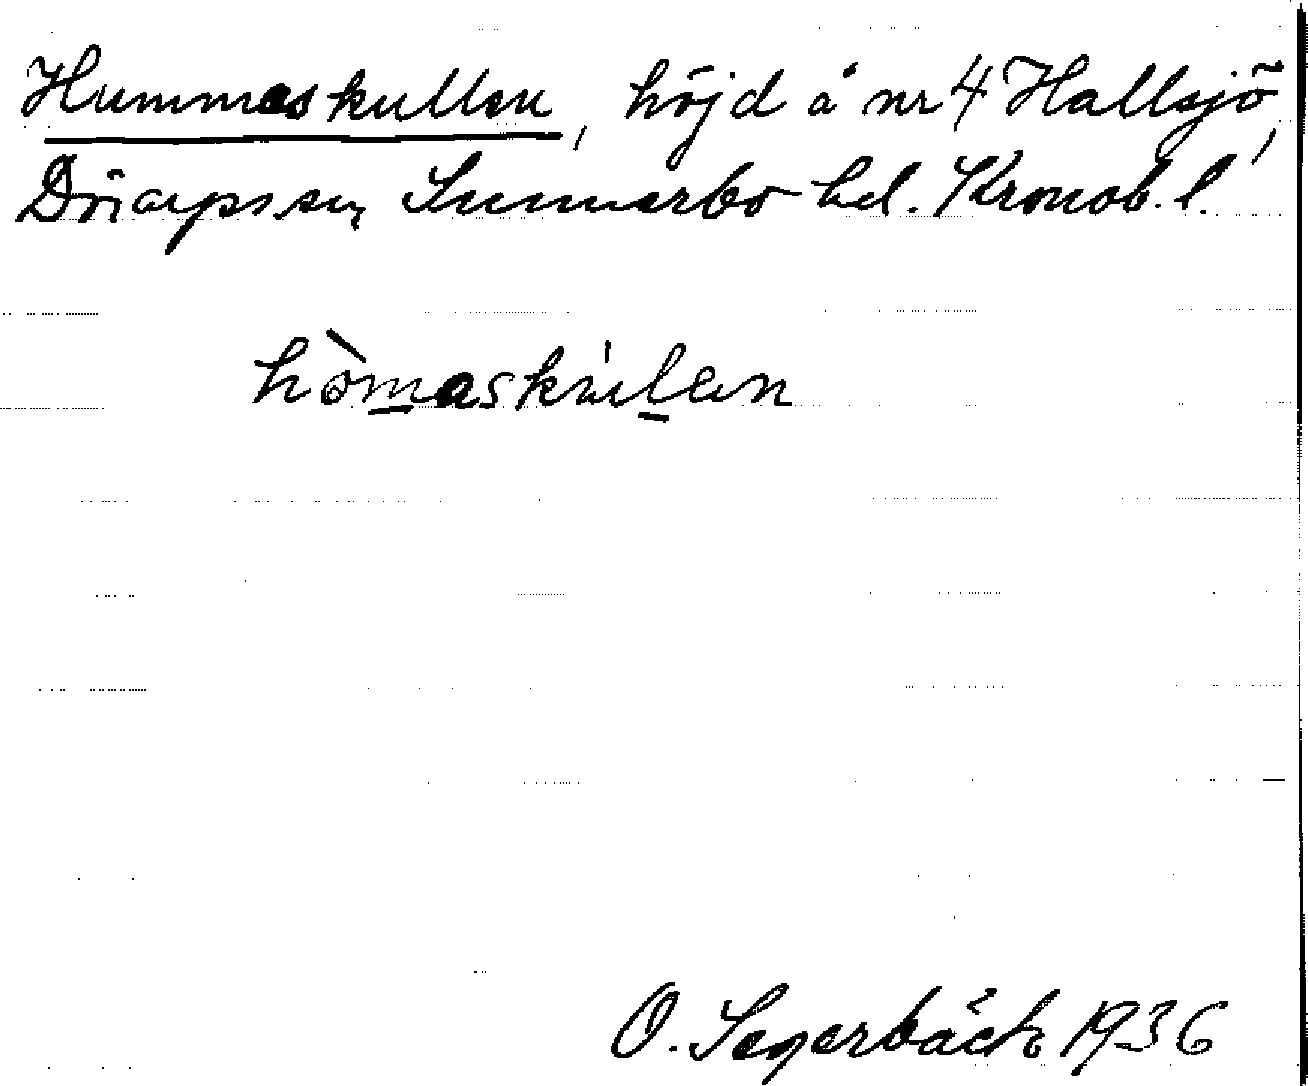 Hummaskullen, höjd å nr 4 Hallsjö,
Dörarps sn, Sunnerbo hd. Kronob. l.
hòmaskúlen
O. Segerbäck 1936